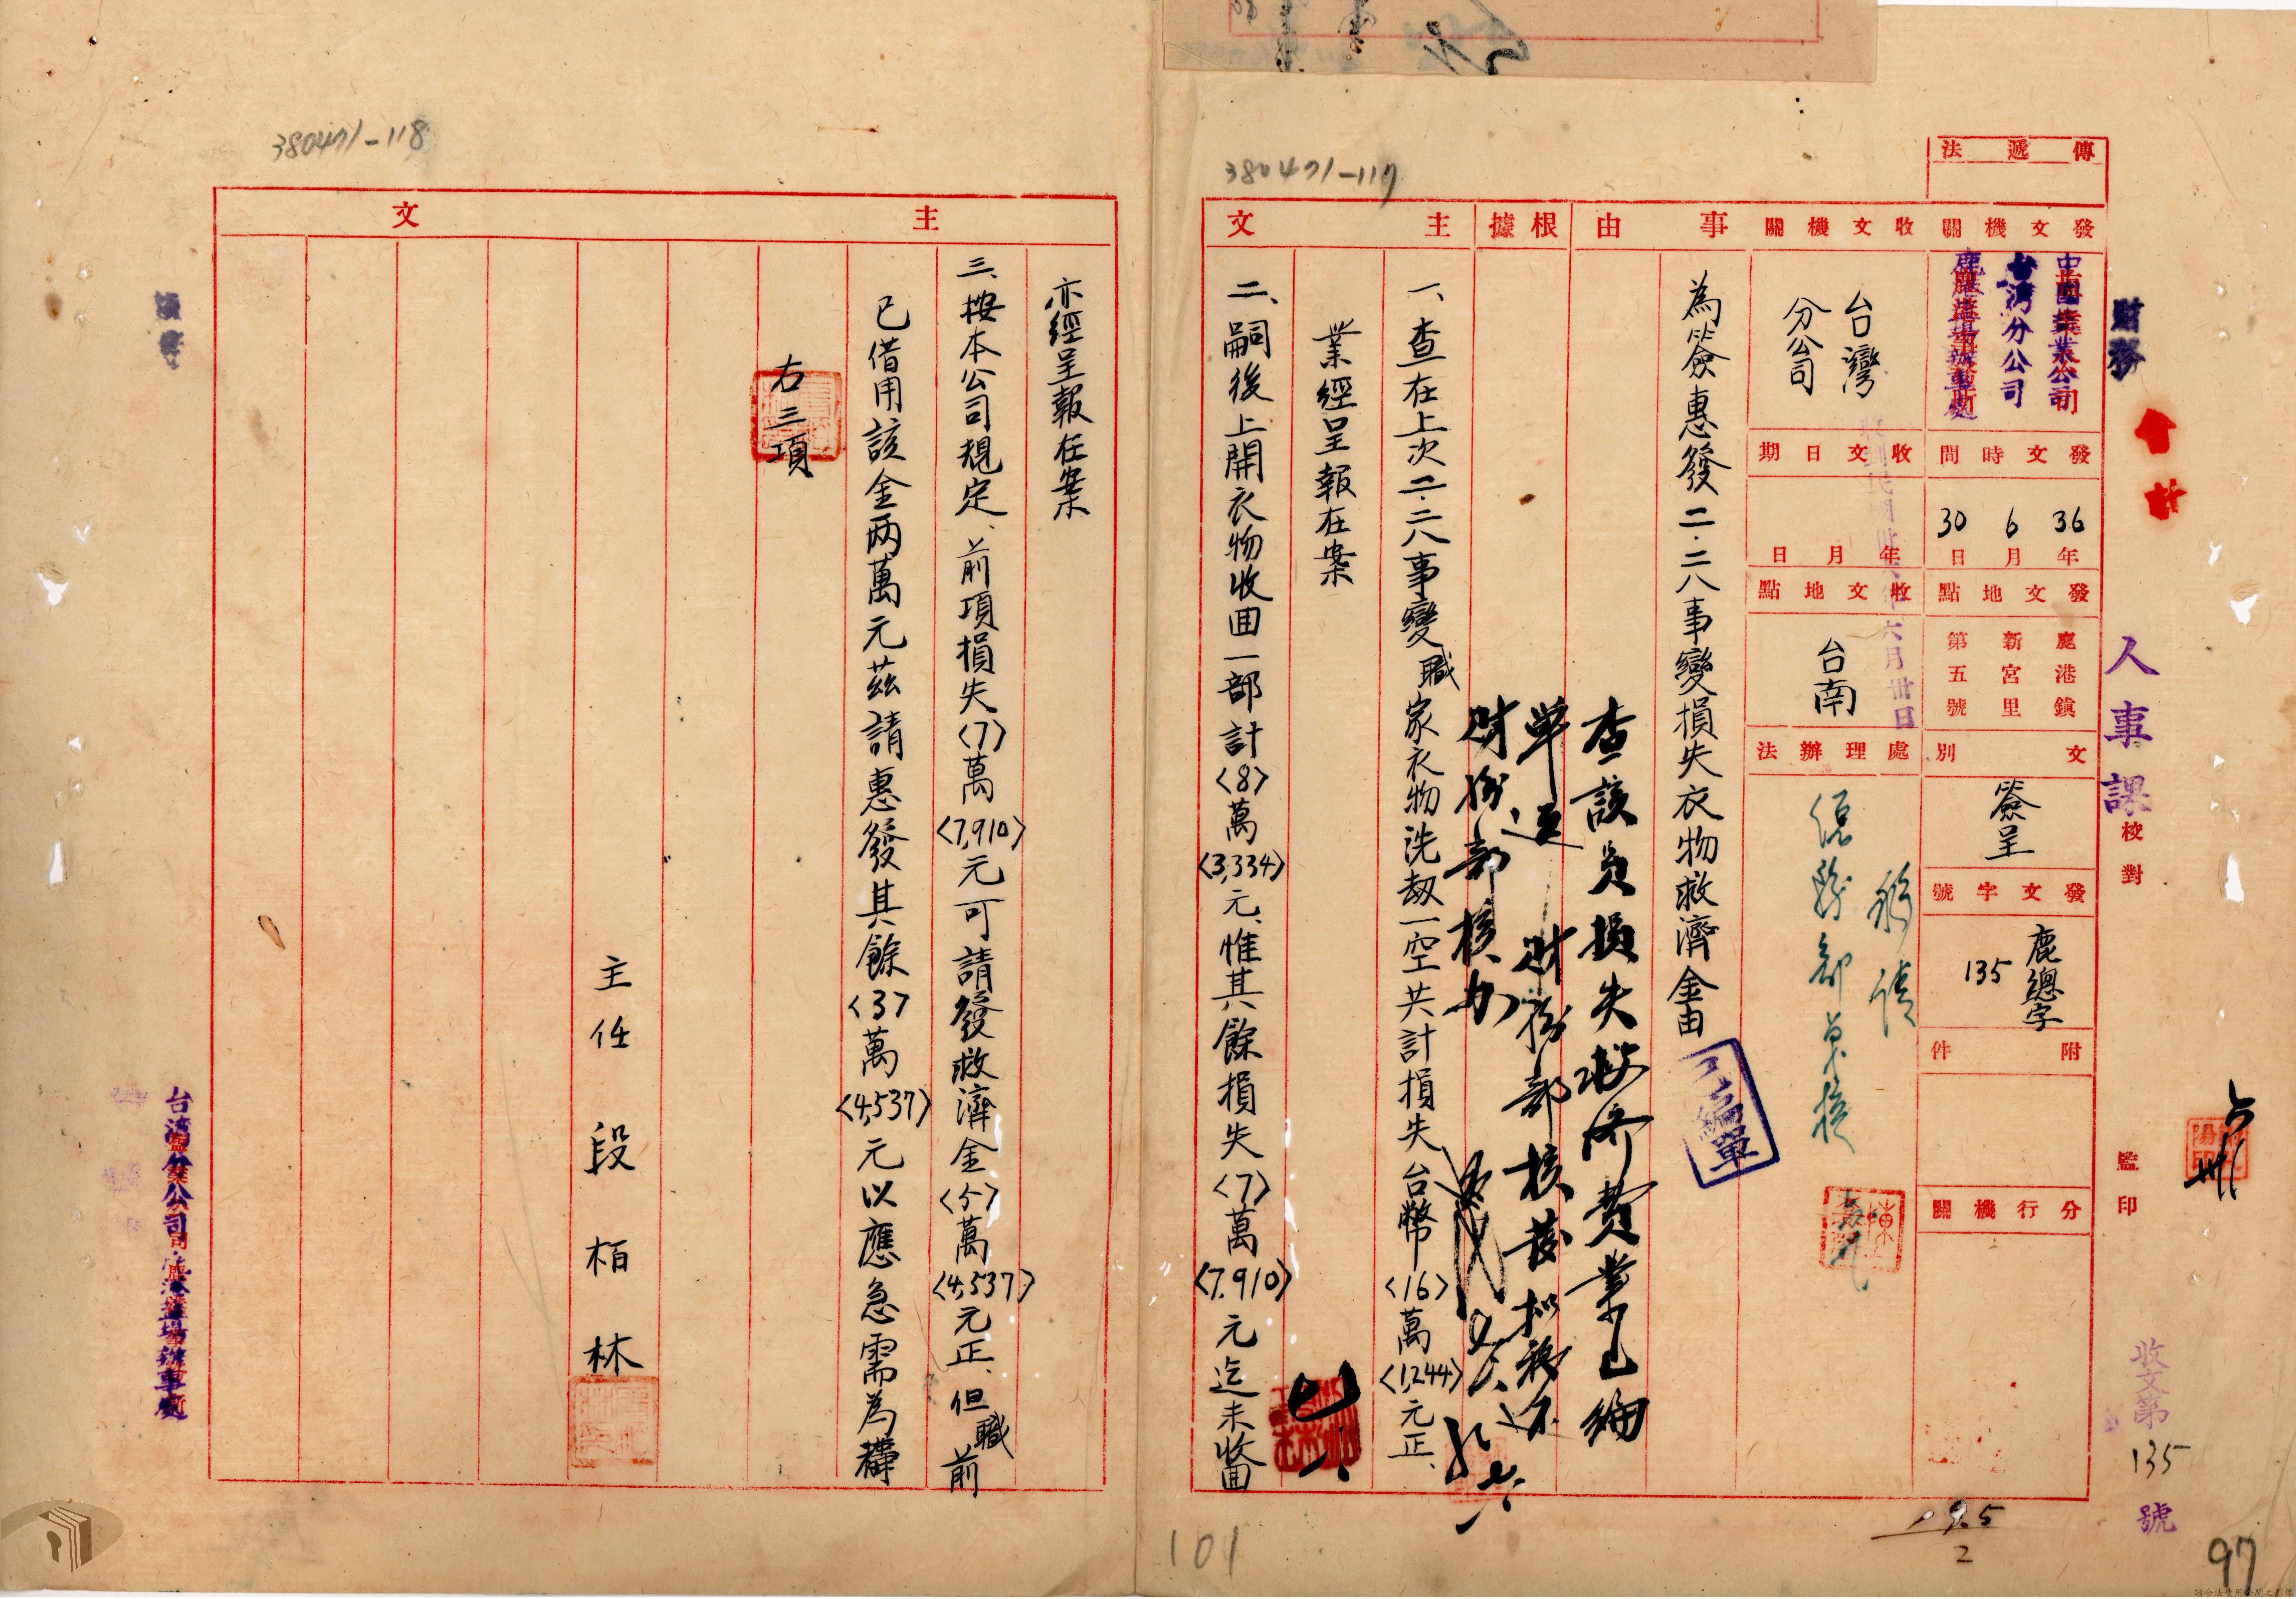 380471-117
傳遞法
發文機關
中國鹽業公司
台灣分公司
鹿港鹽場辦事處
發文時間
36年6月30日
發文地點
鹿港鎮
新宮里
第五號
文別
簽呈
發文字號
鹿總字
135
附件
分行機關
收文機關
台灣
分公司
收文日期
年月日
收文地點
台南
處理辦法
事由
為簽惠發二·二八事變損失衣物救濟金由
查該員損失救濟費業已編
單送財務部核發擬移還
財務部核办
根據
主文
一、查在上次二·二八事變職家衣物洗刼一空共計損失台幣<16>萬<1,244>元正、
業經呈報在案
二、嗣後上開衣物收囬一部計<8>萬<3,334>元、惟其餘損失<7>萬<7,910>元迄未收囬
財務
會計
人事課
校對
監印
收文第
135
號
97
101
380471-118
主文
亦經呈報在案
三、按本公司規定、前項損失<7>萬<7,910>元可請發救濟金<5>萬<4,537>元正、但職前
已借用該金兩萬元茲請惠發其餘<3>萬<4,537>元以應急需為禱
右三項
主任段栢林